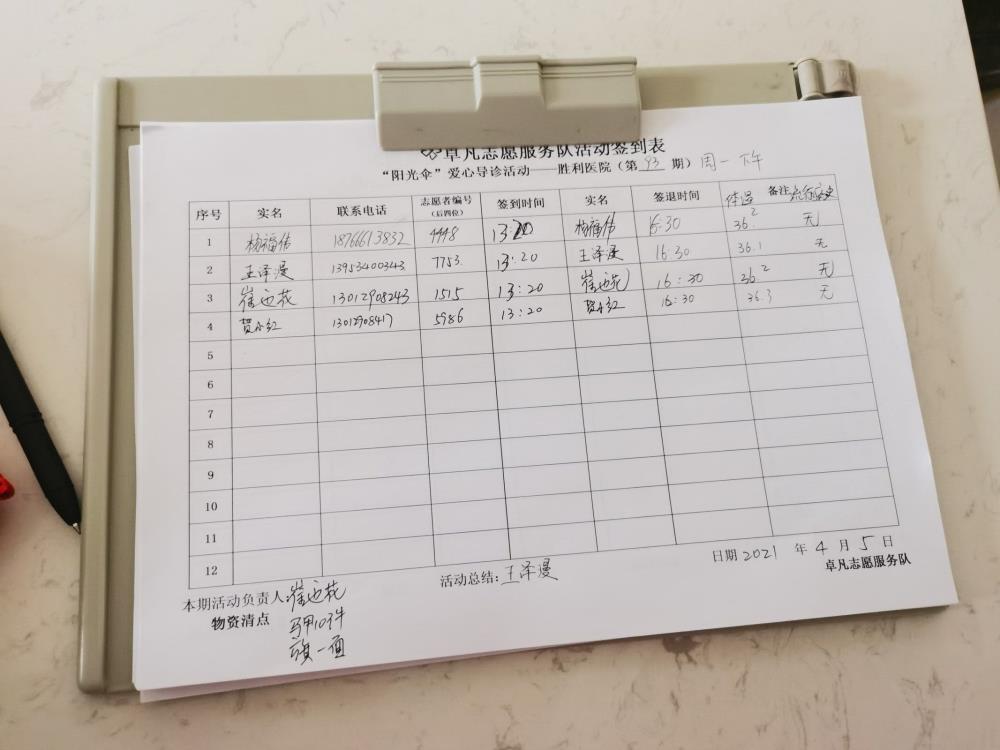 卓凡志愿服务队活动签到表
“阳光伞”爱心导诊活动——胜利医院（第 93 期）周一 下午
序号 实名 联系电话 志愿者编号（后四位） 签到时间 实名 签退时间 体温 备注 流行病史
1 杨福伟 18766613832 4448 13:20 杨福伟 16:30 36.2 无
2 王泽漫 13953400343 7753 13:20 王泽漫 16:30 36.1 无
3 崔迎花 13012908243 1515 13:20 崔迎花 16:30 36.2 无
4 贺小红 13012908417 5986 13:20 贺小红 16:30 36.3 无
5
6
7
8
9
10
11
12
日期 2021 年 4 月 5 日
卓凡志愿服务队
本期活动负责人:崔迎花 活动总结:王泽漫
物资清点 马甲10件
旗一面